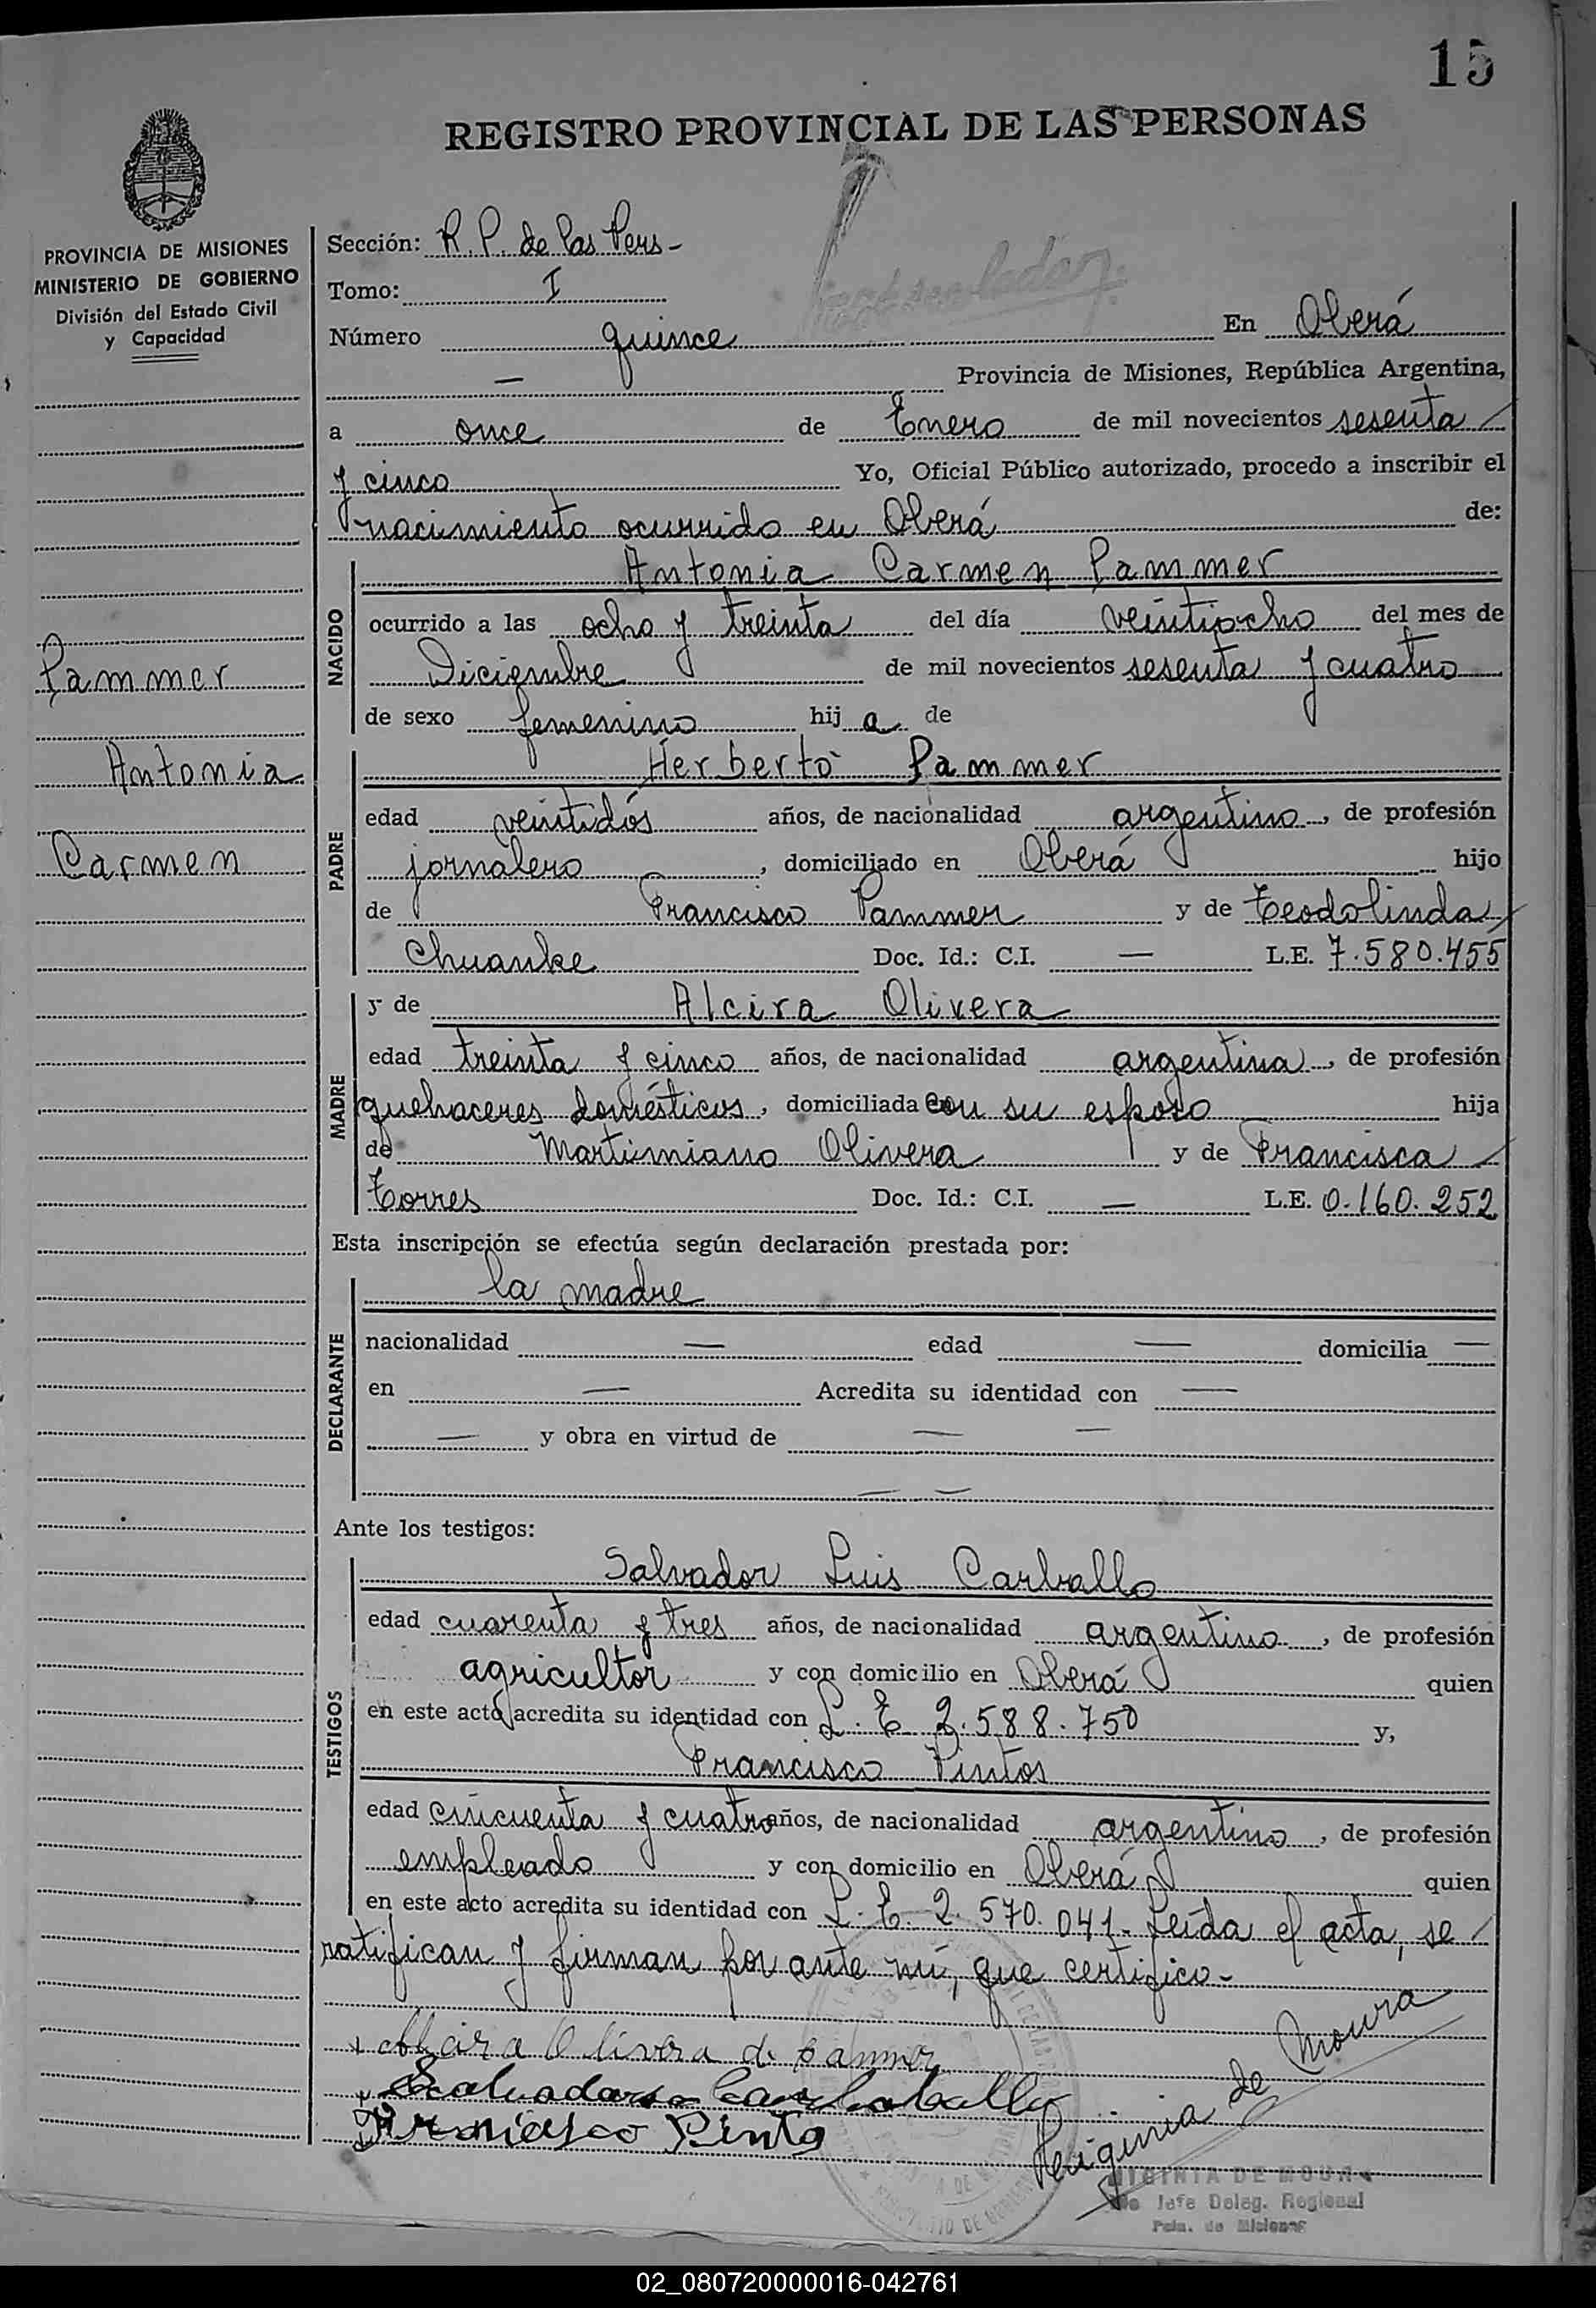 15
REGISTRO PROVINCIAL DE LAS PERSONAS
PROVINCIA DE MISIONES
MINISTERIO DE GOBIERNO
División del Estado Civil
y Capacidad
Pammer
Antonia
Carmen
Sección: R. P. de las Pers -
Tomo: I
Número quince En Oberá
— Provincia de Misiones, República Argentina,
a once de Enero de mil novecientos sesenta
y cinco Yo, Oficial Público autorizado, procedo a inscribir el
nacimiento ocurrido en Oberá de:
NACIDO
Antonia Carmen Pammer
ocurrido a las ocho y treinta del día veintiocho del mes de
Diciembre de mil novecientos sesenta y cuatro
de sexo femenino hij a de
PADRE
Herberto Pammer
edad veintidós años, de nacionalidad argentino, de profesión
jornalero, domiciliado en Oberá hijo
de Francisco Pammer y de Teodolinda
Chuanke Doc. Id.: C.I. — L.E. 7.580.455
MADRE
y de Alcira Olivera
edad treinta y cinco años, de nacionalidad argentina, de profesión
quehaceres domésticos, domiciliada con su esposo hija
de Martimiano Olivera y de Francisca
Torres Doc. Id.: C.I. — L.E. 0.160.252
Esta inscripción se efectúa según declaración prestada por:
DECLARANTE
la madre
nacionalidad — edad — domicilia —
en — Acredita su identidad con —
— y obra en virtud de — —
— —
Ante los testigos:
TESTIGOS
Salvador Luis Carballo
edad cuarenta y tres años, de nacionalidad argentino, de profesión
agricultor y con domicilio en Oberá quien
en este acto acredita su identidad con L. E 2.588.750 y,
Francisco Pintos
edad cincuenta y cuatro años, de nacionalidad argentino, de profesión
empleado y con domicilio en Oberá quien
en este acto acredita su identidad con L. E. 2.570.041- Leída el acta, se
ratifican y firman por ante mí, que certifico -
Alcira Olivera de Pammer
Francisco Pinto
de Moura
DE MOURA
Jefe Deleg. Regional
Pcia. de Misiones
02_080720000016-042761